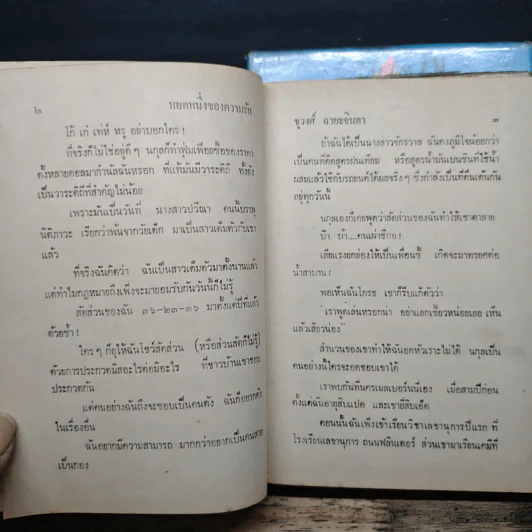 ๒ หยดหนึ่งของความรัก
โก้ เก๋ เท่ห์ หรู อย่าบอกใคร !
ที่จริงก็ไม่ใช่อยู่ดีๆ นกุลก็ทำฟุ่มเฟือยซื้อของราคา
ตั้งหลายดอลมากำนัลฉันหรอก ที่แท้มันมีวาระดิถี ทั้งยัง
เป็นวาระดิถีที่สำคัญไม่น้อย
เพราะมันเป็นวันที่ นางสาวปวีณา คนนี้บรรลุ
นิติภาวะ เรียกว่าพ้นจากวัยเด็ก มาเป็นสาวเต็มตัวกับเขา
แล้ว
ที่จริงฉันคิดว่า ฉันเป็นสาวเต็มตัวมาตั้งนานแล้ว
แต่ทำไมกฎหมายถึงเพิ่งจะมายอมรับกันวันนี้ก็ไม่รู้
สัดส่วนของฉัน ๓๖-๒๓-๓๖ มาตั้งแต่ปีที่แล้ว
ด้วยซ้ำ !
ใครๆ ก็ยุให้ฉันโชว์สัดส่วน (หรือส่วนสัดก็ไม่รู้)
ด้วยการประกวดมิสอะไรต่อมิอะไร ที่ชาวบ้านเขาชอบ
ประกวดกัน
แต่คนอย่างฉันถึงจะชอบเป็นคนดัง ฉันก็อยากดัง
ในเรื่องอื่น
ฉันอยากมีความสามารถ มากกว่าอยากเป็นคนสวย
เป็นกอง
ชูวงศ์ ฉายะจินดา ๓
ถ้าฉันได้เป็นนางสาวจักรวาล ฉันคงภูมิใจน้อยกว่า
เป็นคนที่คิดสูตรฝนเทียม หรือสูตรน้ำมันเบนซินที่ใช้น้ำ
ผสมแล้วใช้กับรถยนต์ได้ผลจริงๆ ซึ่งกำลังเป็นที่ตื่นเต้นกัน
อยู่ทุกวันนี้
นกุลเองก็เคยพูดว่าสัดส่วนของฉันทำให้เขาตาลาย
บ๊ะ บ้า....คนเผ่าซีกอ !
เสียแรงยกย่องให้เป็นเพื่อนซี้ เกิดจะมาทรยศต่อ
น้ำสาบาน !
พอเห็นฉันโกรธ เขาก็รีบแก้ตัวว่า
“เราพูดเล่นหรอกน่า อย่าแยกเขี้ยวหน่อยเลย เห็น
แล้วเสียวน่อง”
สำนวนของเขาทำให้ฉันอดหัวเราะไม่ได้ นกุลเป็น
คนอย่างนี้ใครจะอดชอบเขาได้
เราพบกันที่นครเมลเบอร์นนี่เอง เมื่อสามปีก่อน
ตั้งแต่ฉันอายุสิบแปด และเขายี่สิบเอ็ด
ตอนนั้นฉันเพิ่งเข้าเรียนวิชาเลขานุการปีแรก ที่
โรงเรียนเลขานุการ ถนนฟลินเดอร์ ส่วนเขามาเรียนเคมีที่